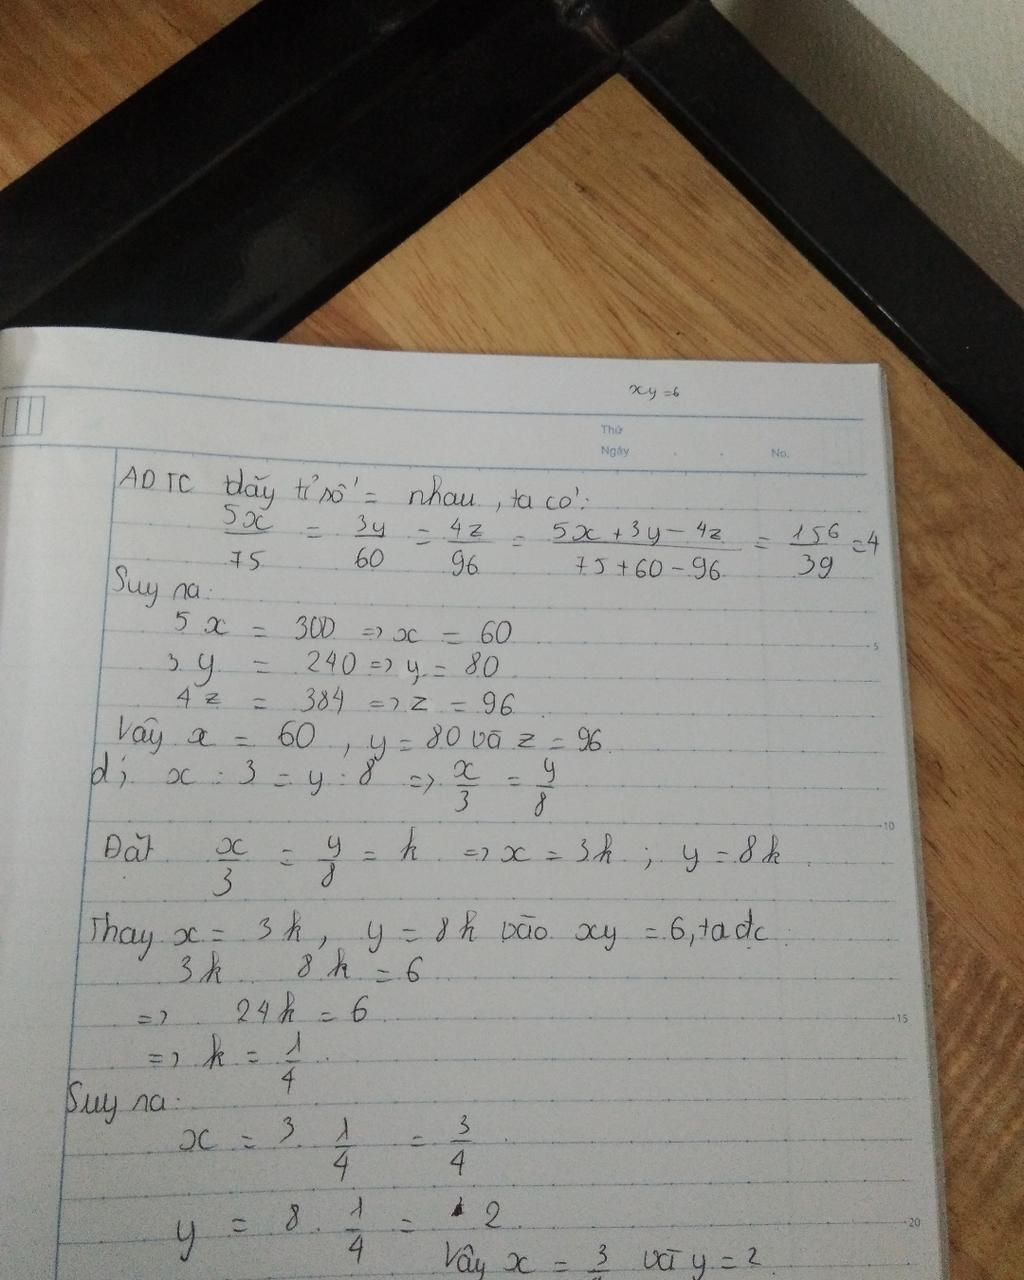 xy = 6
Thứ
Ngày . . No.
ADTC dãy tỉ số = nhau, ta có:
5x/75 = 3y/60 = 4z/96 = (5x + 3y - 4z)/(75 + 60 - 96) = 156/39 = 4
Suy ra:
5x = 300 => x = 60
3y = 240 => y = 80
4z = 384 => z = 96
Vậy x = 60, y = 80 và z = 96
5
d; x : 3 = y : 8 => x/3 = y/8
10
Đặt x/3 = y/8 = k => x = 3k ; y = 8k
Thay x = 3k, y = 8k vào xy = 6, ta đc
3k 8k = 6
=> 24k = 6
15
=> k = 1/4
Suy ra:
x = 3 . 1/4 = 3/4
y = 8 . 1/4 = 2
20
Vậy x = 3/ và y = 2